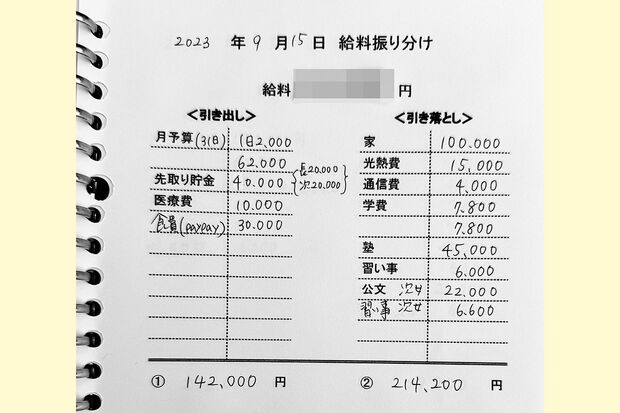 2023 年 9 月 15 日 給料振り分け
給料 円
＜引き出し＞
月予算(31日) 1日2,000
62.000
先取り貯金 40.000 長20.000 次20.000
医療費 10.000
食費(PayPay) 30.000
① 142,000 円
＜引き落とし＞
家 100.000
光熱費 15,000
通信費 4,000
学費 7.800
7.800
塾 45,000
習い事 6.000
公文 次女 22,000
習い事 次女 6.600
② 214,200 円